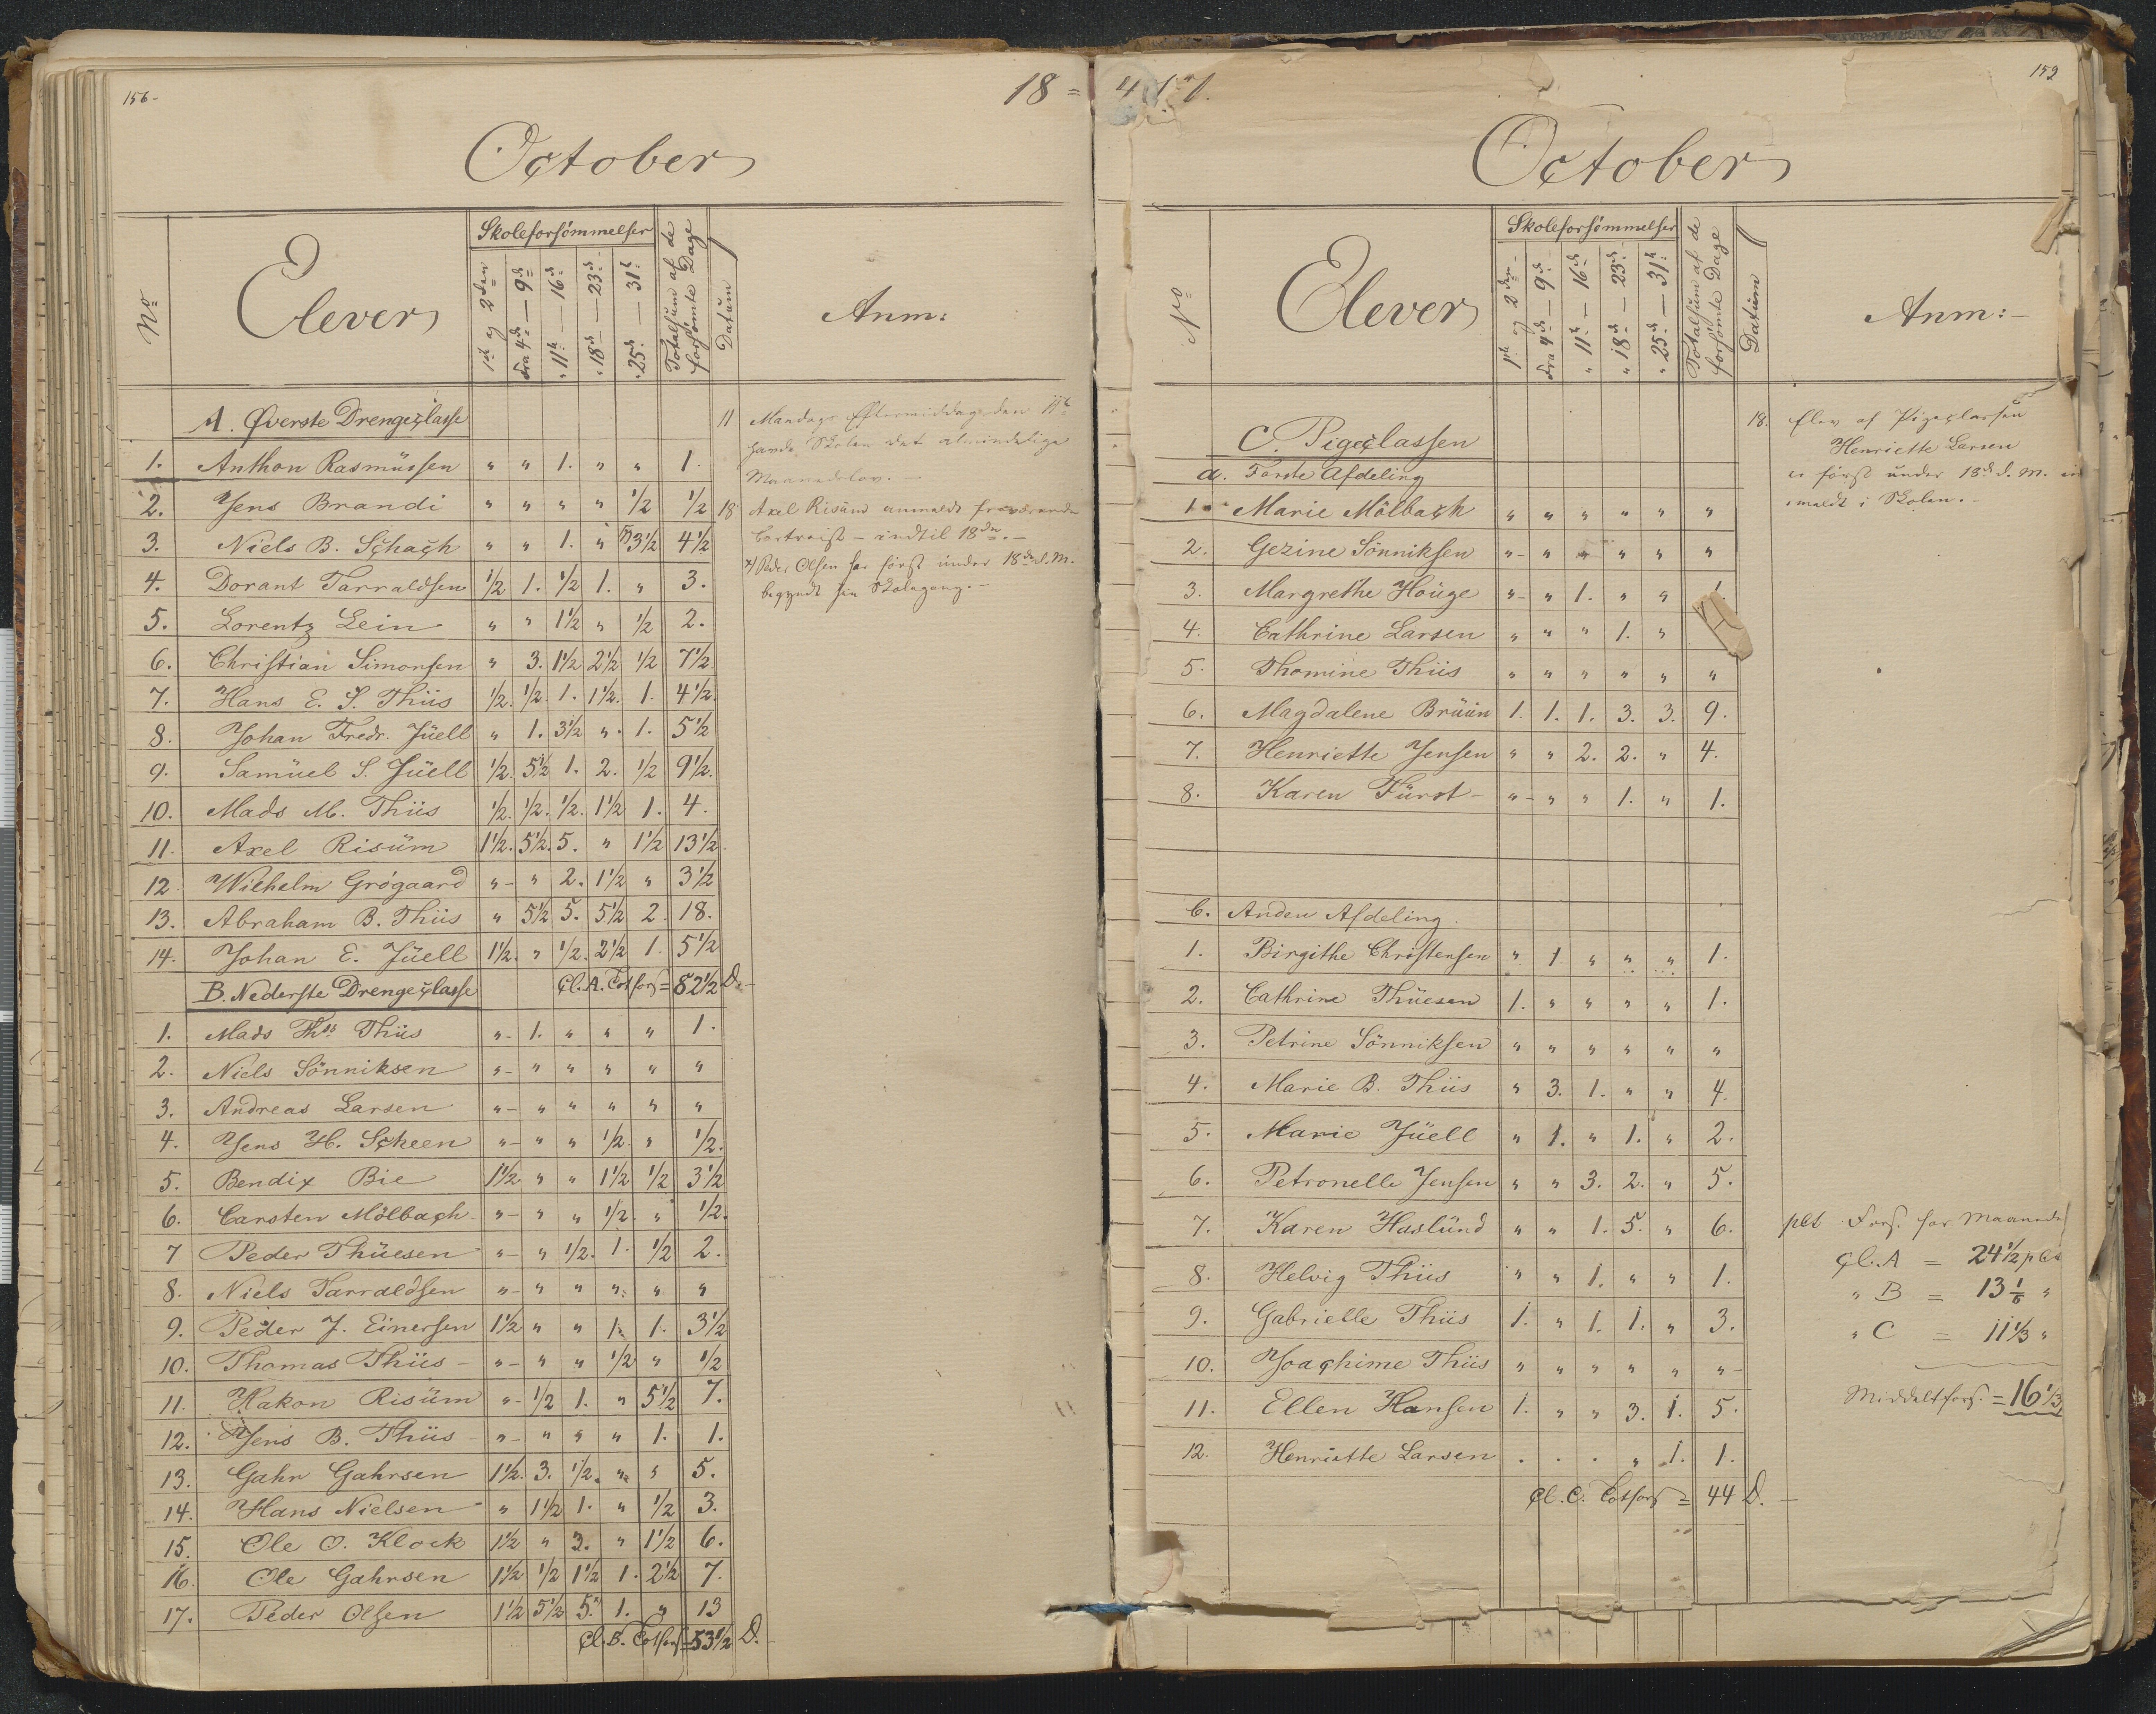 156-
18 =
October
No
Elever
Skoleforsömmelser
1ste og 2den
fra 4de — 9de
" 11te — 16de
" 18de — 23de
" 25de — 31te
Totalsum af de forsömte Dage
Datum
Anm:
A. Øverste Drengeclasse
1. Anthon Rasmüssen " " 1. " " 1.
2. Jens Brandi " " " " 1/2 1/2
3. Niels B. Schach " " 1. " 3 1/2 4 1/2
4. Dorant Tarraldsen 1/2 1. 1/2 1. " 3.
5. Lorentz Lein " " 1 1/2 " 1/2 2.
6. Christian Simonsen " 3. 1 1/2 2 1/2 1/2 7 1/2
7. Hans E. S. Thiis 1/2. 1/2. 1. 1 1/2. 1. 4 1/2.
8. Johan Fredr. Jüell " 1. 3 1/2 ". 1. 5 1/2
9. Samüel S. Jüell 1/2. 5 1/2 1. 2. 1/2 9 1/2.
10. Mads M. Thiis 1/2. 1/2. 1/2. 1 1/2 1. 4.
11. Axel Risüm 1 1/2. 5 1/2. 5. " 1 1/2 13 1/2
12. Wilhelm Grögaard "- " 2. 1 1/2 " 3 1/2
13. Abraham B. Thiis " 5 1/2 5. 5 1/2 2. 18.
14. Johan E. Jüell 1 1/2. " 1/2. 2 1/2 1. 5 1/2
Cl. A. Totfors = 82 1/2 D.
B. Nederste Drengeclasse
1. Mads Ths Thiis "- 1. " " " 1.
2. Niels Sönniksen "- " " " " "
3. Andreas Larsen "- " " " " "
4. Jens H. Scheen "- " " 1/2. " 1/2.
5. Bendix Bie 1 1/2 " " 1 1/2 1/2 3 1/2
6. Carsten Mölbach "- " " 1/2. " 1/2.
7 Peder Thüesen "- " 1/2. 1. 1/2 2.
8. Niels Tarraldsen "- " " " " "
9. Peder J. Einersen 1 1/2 " " 1. 1. 3 1/2
10. Thomas Thiis - "- " " 1/2 " 1/2
11. Hakon Risüm "- 1/2 1. " 5 1/2 7.
12. Jens B. Thiis "- " " " 1. 1.
13. Gahr Gahrsen 1 1/2. 3. 1/2. " " 5.
14. Hans Nielsen " 1 1/2 1. " 1/2 3.
15. Ole O. Klock 1 1/2 " 3. " 1 1/2 6.
16. Ole Gahrsen 1 1/2 1/2 1 1/2 1. 2 1/2 7.
17. Peder Olsen 1 1/2 5 1/2 5. 1. " 13
Cl. B. Totfors = 53 1/2 D.
11 Mandags Eftermiddag den 11te
havde Skolen det almindelige
Maanedslov. —
18 Axel Risüm anmeldt fraværende
bortreist - indtil 18de. —
x) Peder Olsen har først under 18de d. M.
begyndt sin Skolegang. —
159
47.
October
No
Elever
Skoleforsömmelser
1ste og 2den
fra 4de — 9de
" 11te — 16de
" 18de — 23de
" 25de — 31te
Totalsum af de forsömte Dage
Datum
Anm:-
C. Pigeclassen
a. Første Afdeling
1. Marie Mölbach " " " " " "
2. Gezine Sönniksen "- " " " " "
3. Margrethe Höuge "- " 1. " "
4. Cathrine Larsen " " " 1. "
5. Thomine Thiis " " " " " "
6. Magdalene Brüün 1. 1. 1. 3. 3. 9.
7. Henriette Jensen " " 2. 2. " 4.
8. Karen Fürst - "- " " 1. " 1.
b. Anden Afdeling.
1. Birgithe Christensen " 1 " " " 1.
2. Cathrine Thüesen 1. " " " " 1.
3. Petrine Sönniksen " " " " " "
4. Marie B. Thiis " 3. 1. " " 4.
5. Marie Jüell " 1. " 1. " 2.
6. Petronelle Jensen " " 3. 2. " 5.
7. Karen Haslünd " " 1. 5. " 6.
8. Helvig Thiis " " 1. " " 1.
9. Gabrielle Thiis 1. " 1. 1. " 3.
10. Joachime Thiis " " " " " "-
11. Ellen Hansen 1. " " 3. 1. 5.
12. Henriette Larsen . . . " 1. 1.
Cl. C. Totfors = 44 D. —
18. Elev af Pigeclassen
Henriette Larsen
er først under 18de d. M. ind
meldt i Skolen. -
pct Fors. for Maaneden
Cl. A = 24 1/2 pct
" B = 13 1/6 "
" C = 11 1/3 "
Middeltfors. = 16 1/3